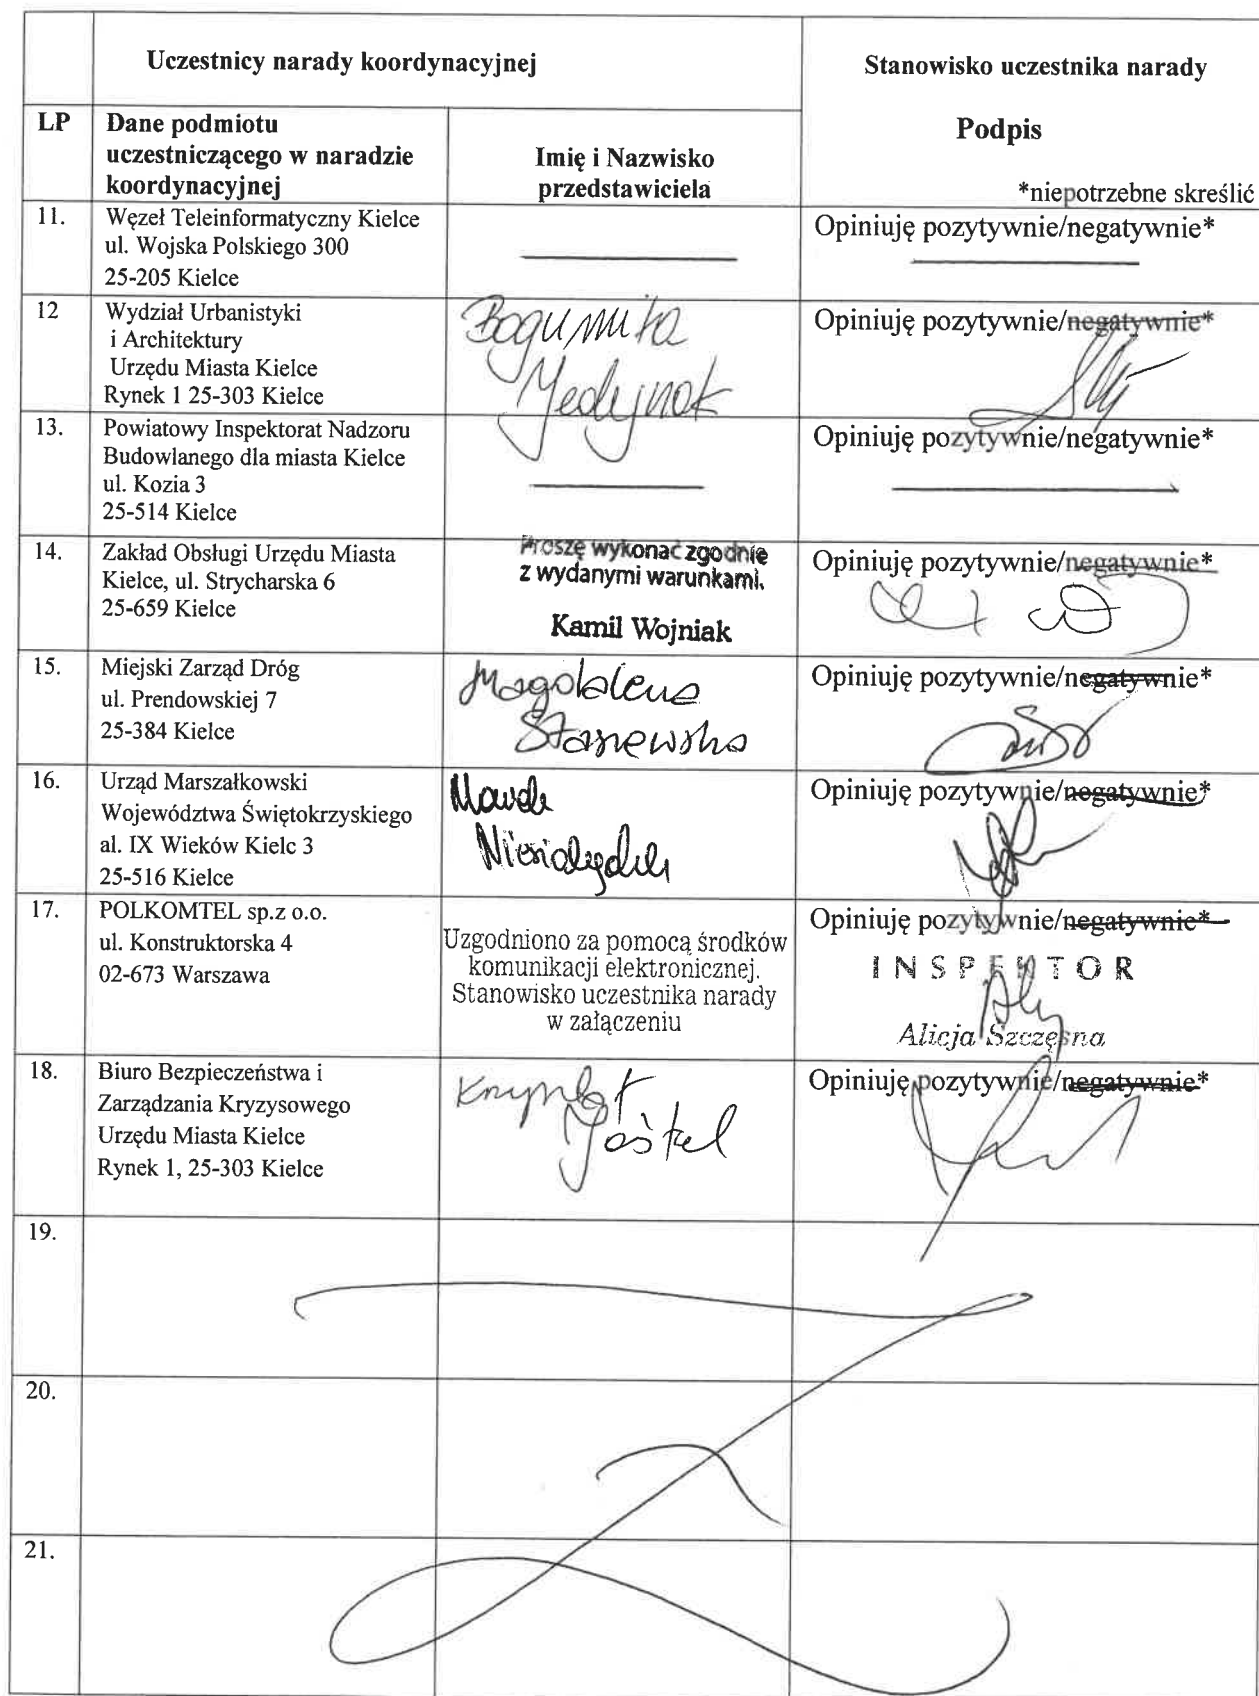 Uczestnicy narady koordynacyjnej
Stanowisko uczestnika narady
LP
Dane podmiotu
uczestniczącego w naradzie
koordynacyjnej
Imię i Nazwisko
przedstawiciela
Podpis
*niepotrzebne skreślić
11.
Węzeł Teleinformatyczny Kielce
ul. Wojska Polskiego 300
25-205 Kielce
Opiniuję pozytywnie/negatywnie*
12
Wydział Urbanistyki
i Architektury
Urzędu Miasta Kielce
Rynek 1 25-303 Kielce
Bogumiła
Medejnok
Opiniuję pozytywnie/negatywnie*
13.
Powiatowy Inspektorat Nadzoru
Budowlanego dla miasta Kielce
ul. Kozia 3
25-514 Kielce
Opiniuję pozytywnie/negatywnie*
14.
Zakład Obsługi Urzędu Miasta
Kielce, ul. Strycharska 6
25-659 Kielce
Proszę wykonać zgodnie
z wydanymi warunkami.
Kamil Wojniak
Opiniuję pozytywnie/negatywnie*
15.
Miejski Zarząd Dróg
ul. Prendowskiej 7
25-384 Kielce
Magdalena
Staniewska
Opiniuję pozytywnie/negatywnie*
16.
Urząd Marszałkowski
Województwa Świętokrzyskiego
al. IX Wieków Kielc 3
25-516 Kielce
Opiniuję pozytywnie/negatywnie*
17.
POLKOMTEL sp.z o.o.
ul. Konstruktorska 4
02-673 Warszawa
Uzgodniono za pomocą środków
komunikacji elektronicznej.
Stanowisko uczestnika narady
w załączeniu
Opiniuję pozytywnie/negatywnie*
INSPEKTOR
Alicja Szczęsna
18.
Biuro Bezpieczeństwa i
Zarządzania Kryzysowego
Urzędu Miasta Kielce
Rynek 1, 25-303 Kielce
Opiniuję pozytywnie/negatywnie*
19.
20.
21.